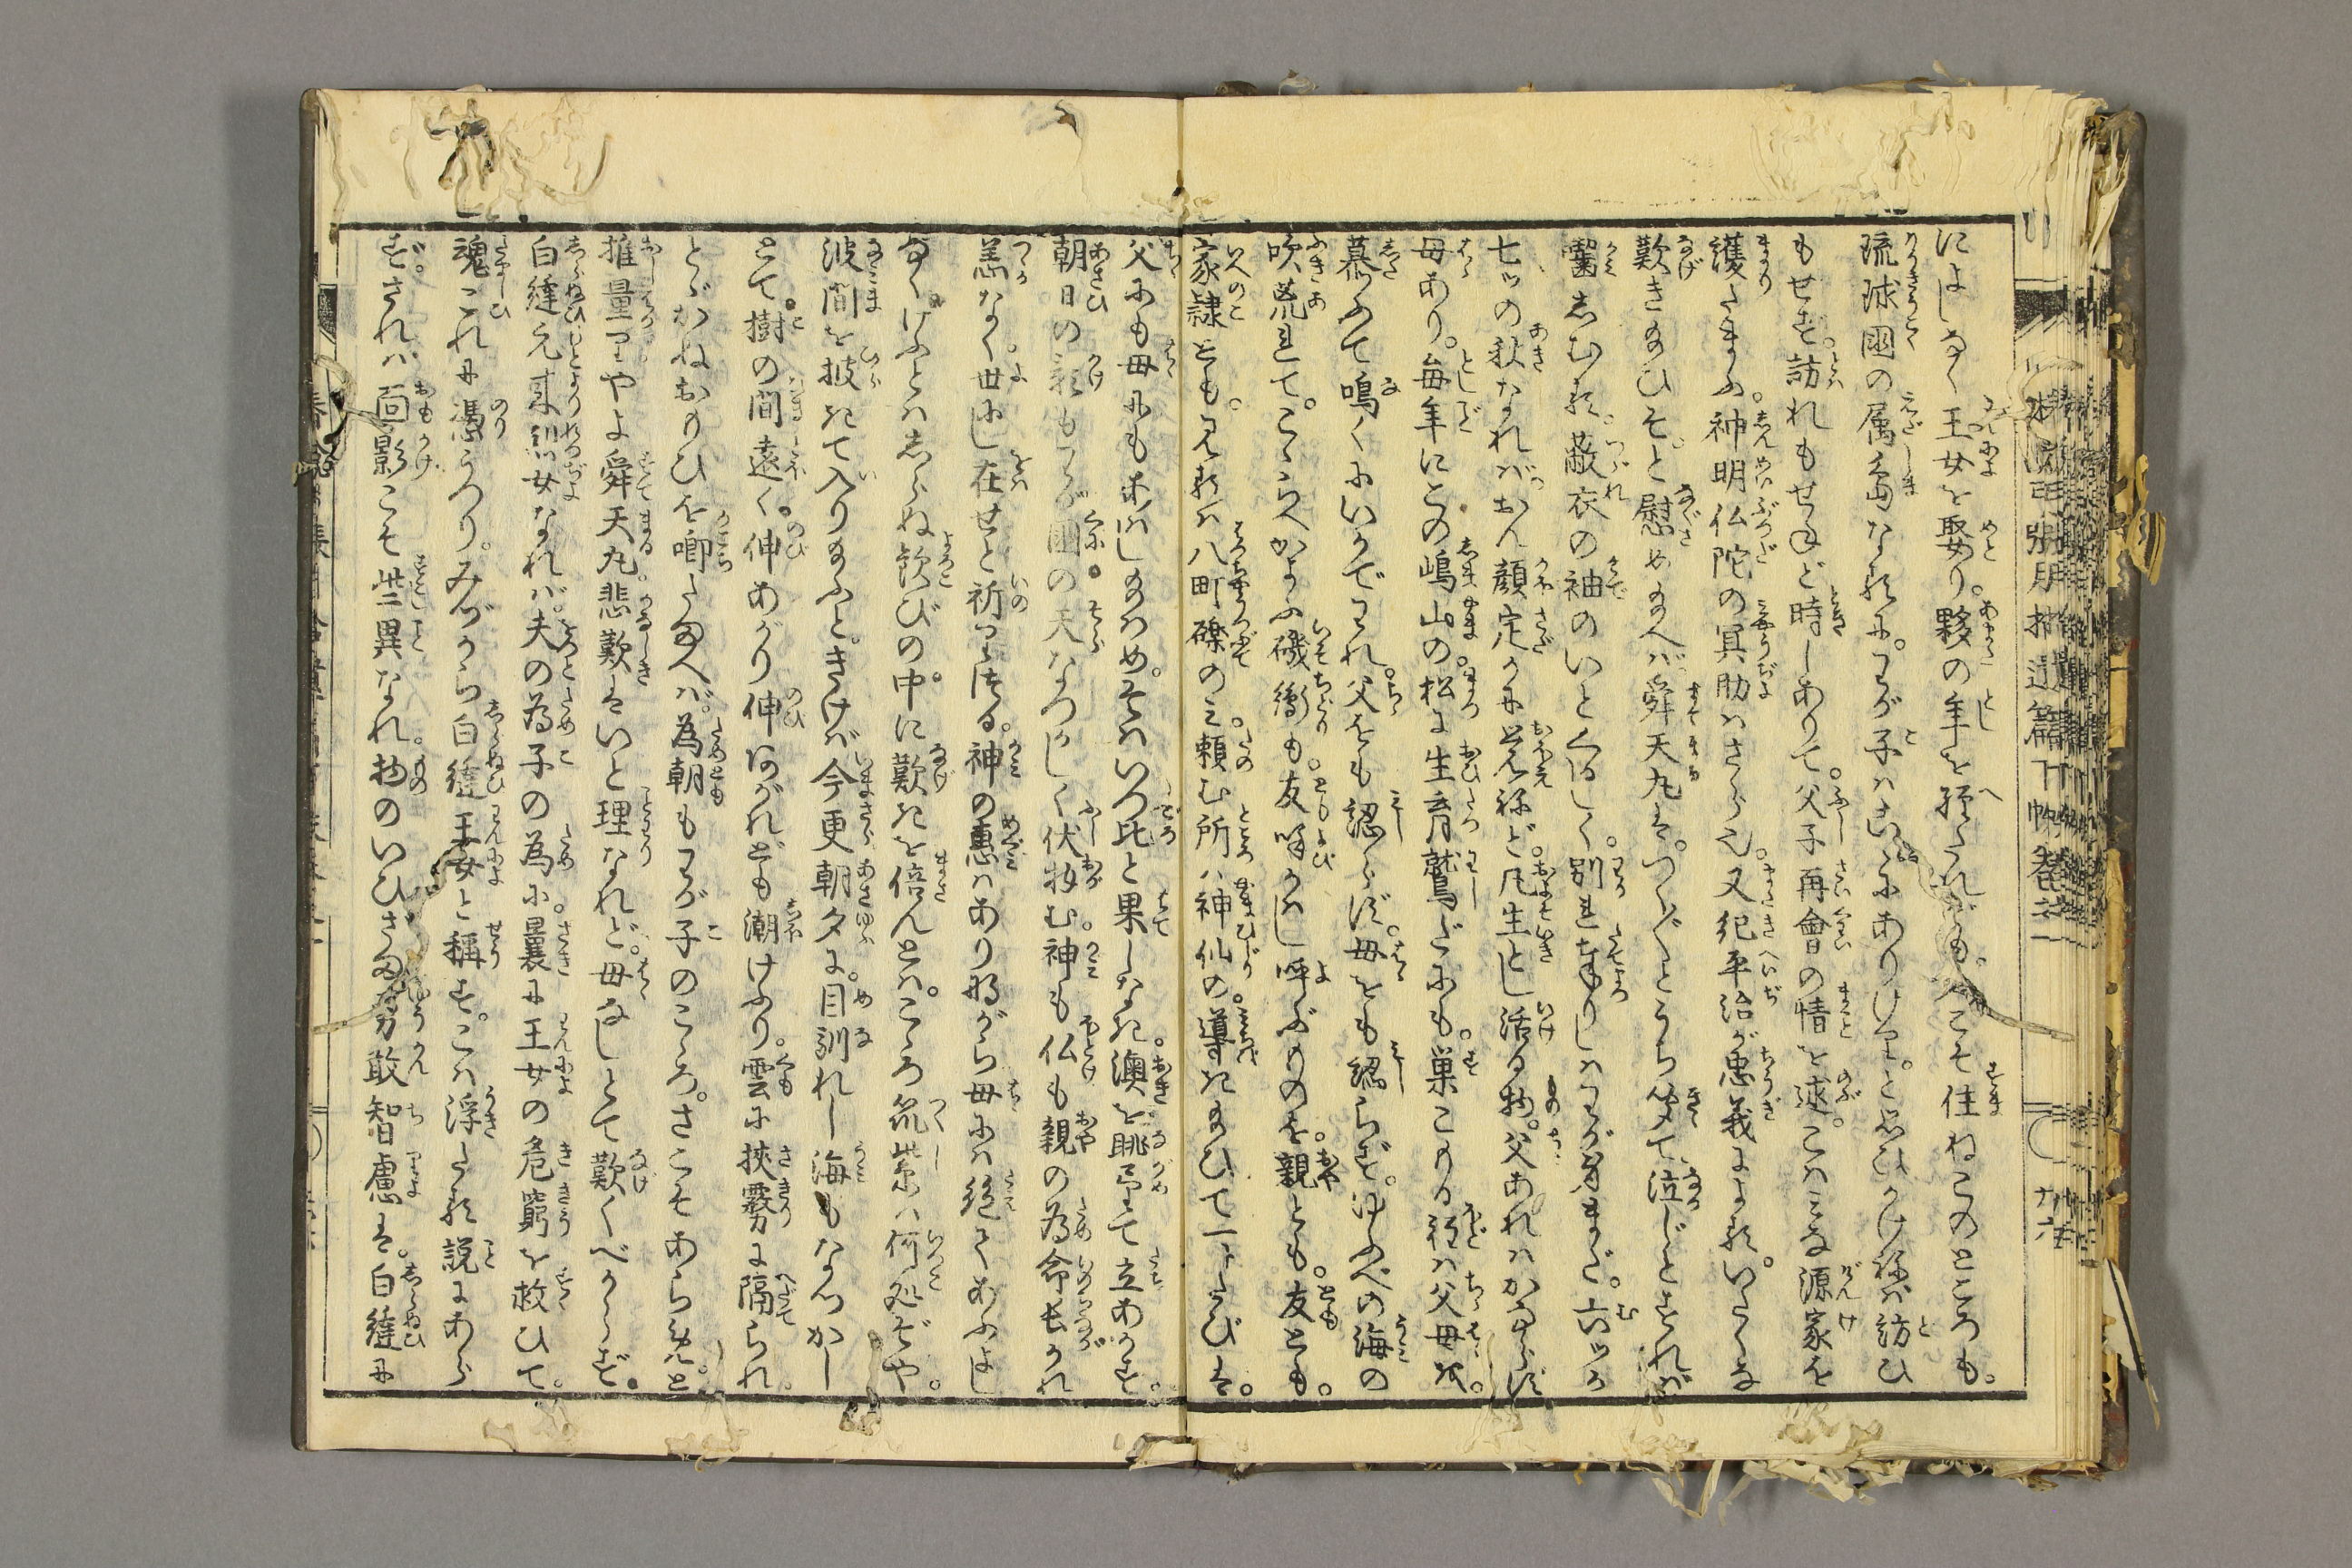 によしなく王女を娶り。夥の年を経たれども。人こそ住ねこのところも。
琉球國の属嶌なるに。わが子はこゝにありけり。と思ひかけねば訪ひ
もせず。訪れもせねど時しありて。父子再會の情を述。こはみな源家を
護たまふ。神明仏陀の冥助はさら也。又紀平治が忠義による。いたくな
歎き給ひそ。と慰め給へば。舜天丸は。つく〴〵とうち聞て。泣じとすれば
囓しむる。敝衣の袖のいとくるしく。別れまゐりしはわが身まだ。六ツか
七ツの秋なれば。おん顔定かに覚ねど。凡生とし活る物。父あれはかならず
母あり。毎年にこの嶋山の。松に生育鷲だにも。巣こもる程は父母を。
慕ふて鳴くにいかでわれ。父をも認らず。母をも認らず。ゆふべの海の
吹荒れて。こゝろへかよふ磯衞も。友呼かはし呼ぶものを。親とも。友とも。
家隷とも。見るは八町礫のみ。頼む所は神仙の。導き給ひて一トたびは。
父にも母にもあはし給はめ。そはいつ比と果しなき。澳を眺望て立あかす。
朝日の影もわが國の。天なつかしく伏拝む。神も仏も親の為。命長かれ
恙なく。世にし在せと祈りつる。神の惠はあり乍がら母には絶てあふよし
なく。けふとはしらぬ歓びの。中に歎きを倍んとは。こゝろ筑紫は何処ぞや。
波間を披きて入り給ふと。きけば今更朝夕に。目訓れし海もなつかし
とて。樹の間遠く。伸あがり伸あがれども潮けふり。雲に挾霧に隔られ
とゞかねおもひを啣たまへば。為朝もわが子のこゝろ。さこそあらめ。と
推量りやよ舜天丸。悲歎はいと理なれど。母なしとて歎くべからず。
白縫元来烈女なれば。夫の為子の為に。曩に王女の危窮を救ひて。
魂これに憑うつり。みづから白縫王女と稱す。こは浮たる説にあら
ず。されは面影こそ些異なれ。物のいひさま勇敢智慮は。白縫に